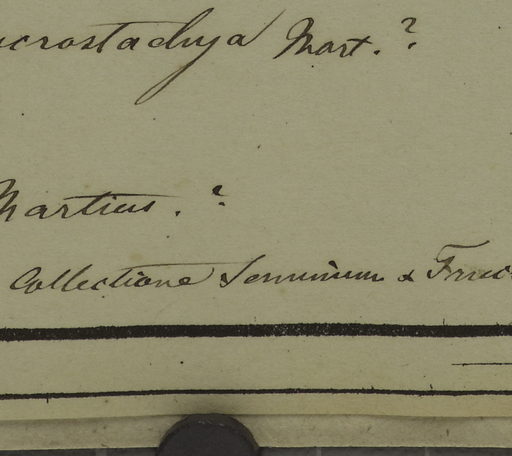 crostachya Mart. ?
Martius. ?
Collectione Seminum & Fruc